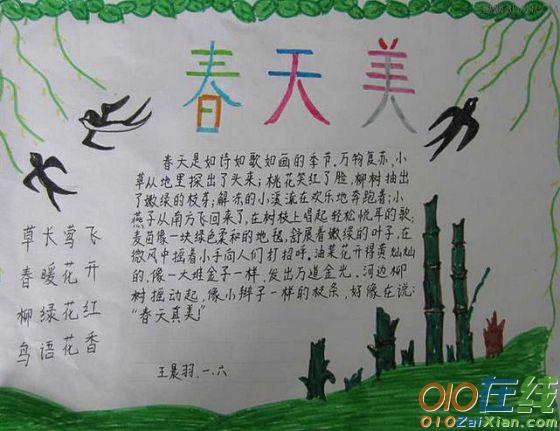 春天美
春天是如诗如歌如画的季节,万物复苏,小
草从地里探出了头来;桃花笑红了脸,柳树抽出
了嫩绿的枝芽;解冻的小溪流在欢乐地奔跑着;小
燕子从南方飞回来了,在树枝上唱起轻松悦耳的歌;
麦苗像一块绿色柔和的地毯,舒展着嫩绿的叶子,在
微风中摇着小手向人们打招呼。油菜花开得黄灿灿
的,像一大堆金子一样,发出万道金光。河边柳
树摇动起,像小辫子一样的枝条,好像在说:
“春天真美!”
草长莺飞
春暖花开
柳绿花红
鸟语花香
王晨羽.一.六
010在线
010ZaiXian.com